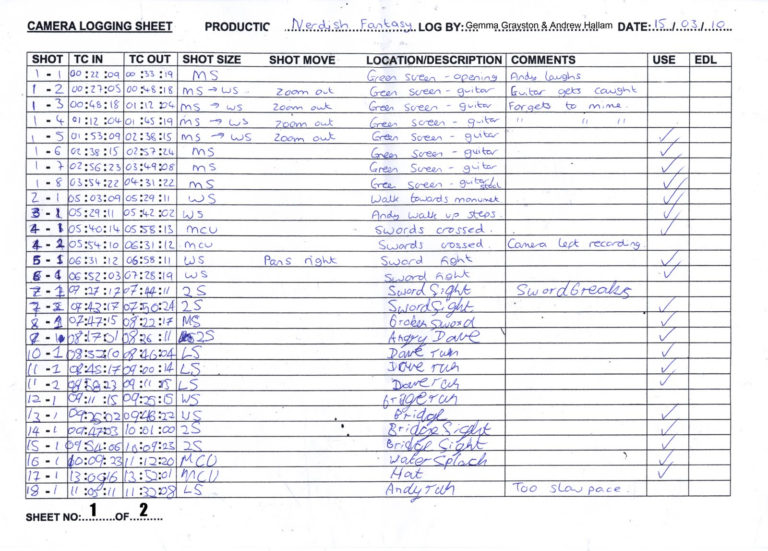 CAMERA LOGGING SHEET PRODUCTIC Nerdish Fantasy LOG BY: Gemma Grayston & Andrew Hallam DATE: 15/03/10
SHOT TC IN TC OUT SHOT SIZE SHOT MOVE LOCATION/DESCRIPTION COMMENTS USE EDL
1 - 1 00:22:09 00:33:19 MS Green screen - opening Andy laughs
1 - 2 00:27:05 00:48:18 MS → WS Zoom out Green screen - guitar Guitar gets caught
1 - 3 00:48:18 01:12:04 MS → WS Zoom out Green screen - guitar Forgets to mime.
1 - 4 01:12:04 01:45:19 MS → WS Zoom out Green screen - guitar " " "
1 - 5 01:53:09 02:38:15 MS → WS Zoom out Green screen - guitar ✓
1 - 6 02:38:15 02:57:24 MS Green screen - guitar ✓
1 - 7 02:56:23 03:49:08 MS Green screen - guitar ✓
1 - 8 03:54:22 04:31:22 MS Green screen - guitar/ ✓
2 - 1 05:03:09 05:29:11 WS Walk towards monument ✓
3 - 1 05:29:11 05:42:02 WS Andy walk up steps. ✓
4 - 1 05:40:14 05:58:13 MCU Swords crossed. ✓
4 - 2 05:54:10 06:31:12 MCU Swords crossed. Camera left recording
5 - 1 06:31:12 06:58:11 WS Pans right Sword fight ✓
6 - 1 06:52:03 07:28:19 WS Sword fight ✓
7 - 1 07:27:17 07:44:11 2S Sword Sight Sword Breaks
7 - 2 07:43:17 07:50:24 2S Sword Sight ✓
8 - 1 07:47:15 08:22:17 MS Broken Sword ✓
9 - 1 08:17:01 2S Angry Dave ✓
10 - 1 08:46:04 LS Dave run ✓
11 - 1 08:45:17 09:00:14 LS Dave run ✓
11 - 2 LS Dave run ✓
12 - 1 09:11:15 09:25:15 WS
13 - 1 Bridge ✓
14 - 1 09:47:03 10:01:00 2S Bridge Sight ✓
15 - 1 09:54:06 10:09:23 2S Bridge Sight ✓
16 - 1 10:09:23 11:12:20 MCU Water Splash ✓
17 - 1 MCU Hat ✓
18 - 1 11:05:11 11:32:08 LS Andy run Too slow pace.
SHEET NO: 1 OF 2